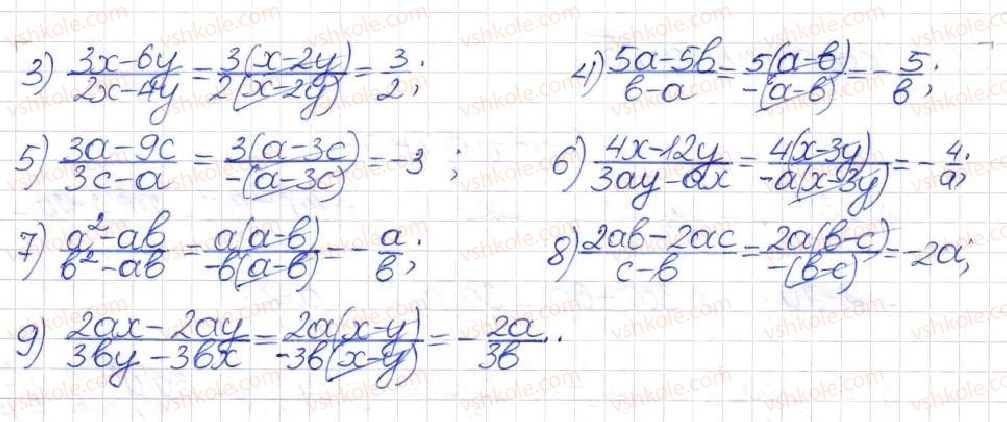 3) (3x-6y)/(2x-4y) = 3(x-2y)/2(x-2y) = 3/2; 4) (5a-5b)/(b-a) = 5(a-b)/-(a-b) = -5/b;
5) (3a-9c)/(3c-a) = 3(a-3c)/-(a-3c) = -3; 6) (4x-12y)/(3ay-ax) = 4(x-3y)/-a(x-3y) = -4/a;
7) (a²-ab)/(b²-ab) = a(a-b)/-b(a-b) = -a/b; 8) (2ab-2ac)/(c-b) = 2a(b-c)/-(b-c) = -2a;
9) (2ax-2ay)/(3by-3bx) = 2a(x-y)/-3b(x-y) = -2a/3b.